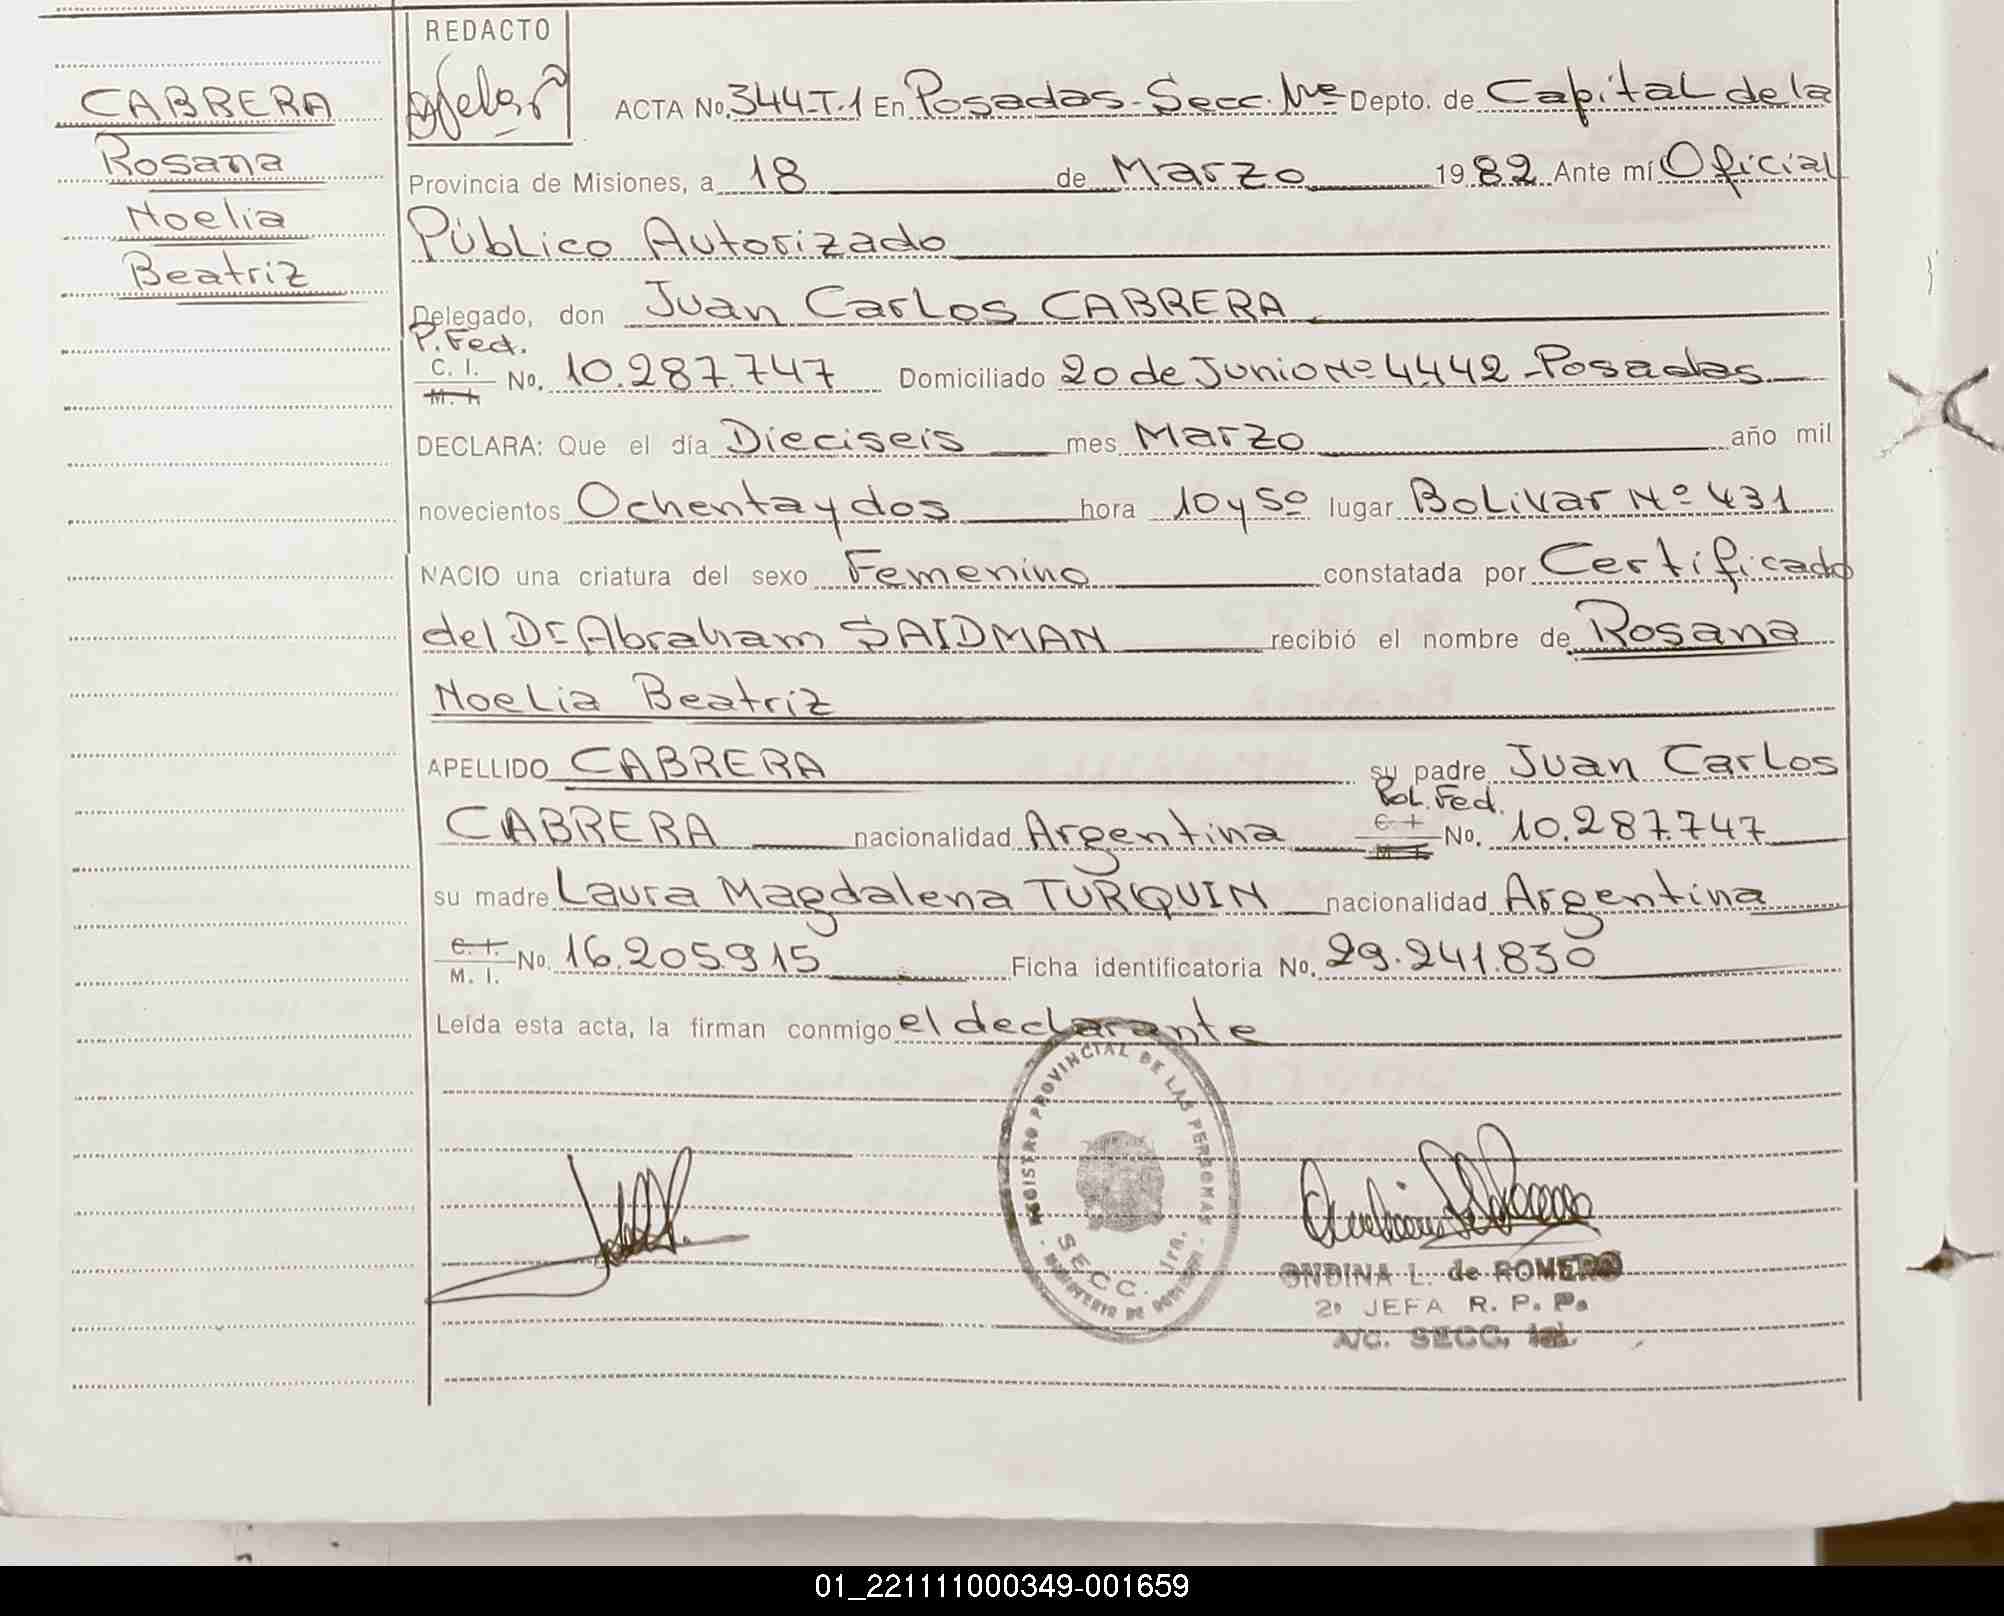 REDACTO
CABRERA
Rosana
Noelia
Beatriz
ACTA No. 344-T.1 En Posadas-Secc. 1ra Depto. de Capital de la
Provincia de Misiones, a 18 de Marzo 1982 Ante mí Oficial
Público Autorizado
Delegado, don Juan Carlos CABRERA
P. Fed.
C. I. M. I. No. 10.287.747 Domiciliado 20 de Junio Nº 4442-Posadas
DECLARA: Que el día Dieciseis mes Marzo año mil
novecientos Ochenta y dos hora 10 y 50 lugar Bolivar Nº 431
NACIO una criatura del sexo Femenino constatada por Certificado
del Dr. Abraham SAIDMAN recibió el nombre de Rosana
Noelia Beatriz
APELLIDO CABRERA su padre Juan Carlos
Pol. Fed.
CABRERA nacionalidad Argentina C. I. M. I. No. 10.287.747
su madre Laura Magdalena TURQUIN nacionalidad Argentina
C. I. M. I. No. 16.205.915 Ficha identificatoria No. 29.241.830
Leída esta acta, la firman conmigo el declarante
REGISTRO PROVINCIAL DE LAS PERSONAS
SECC. 1ra.
MINISTERIO DE GOBIERNO
ONDINA L. de ROMERO
2º JEFA R. P. P.
A/C. SECC. 1a.
01_221111000349-001659